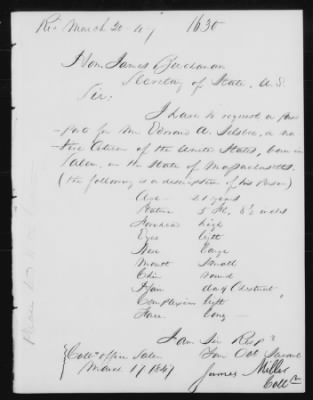 Rec March 20. 47 1630
Hon. James Buchanan
Secretary of State, U.S.
Sir:
I have to request a Pass
port for Mr Edward A. a na
tive Citizen of the United States, born in
Salem, in the State of Massachusetts.
(the following is a description of his Person)
Age 21 years
Stature 5 ft. 8½ inches
Forehead high
Eyes light
Nose large
Mouth small
Chin round
Hair Chestnut
Complexion light
Face long
I am Sir Resp.
Your Obt Servant
James Miller
Collr
Collrs office Salem
March 17 1847